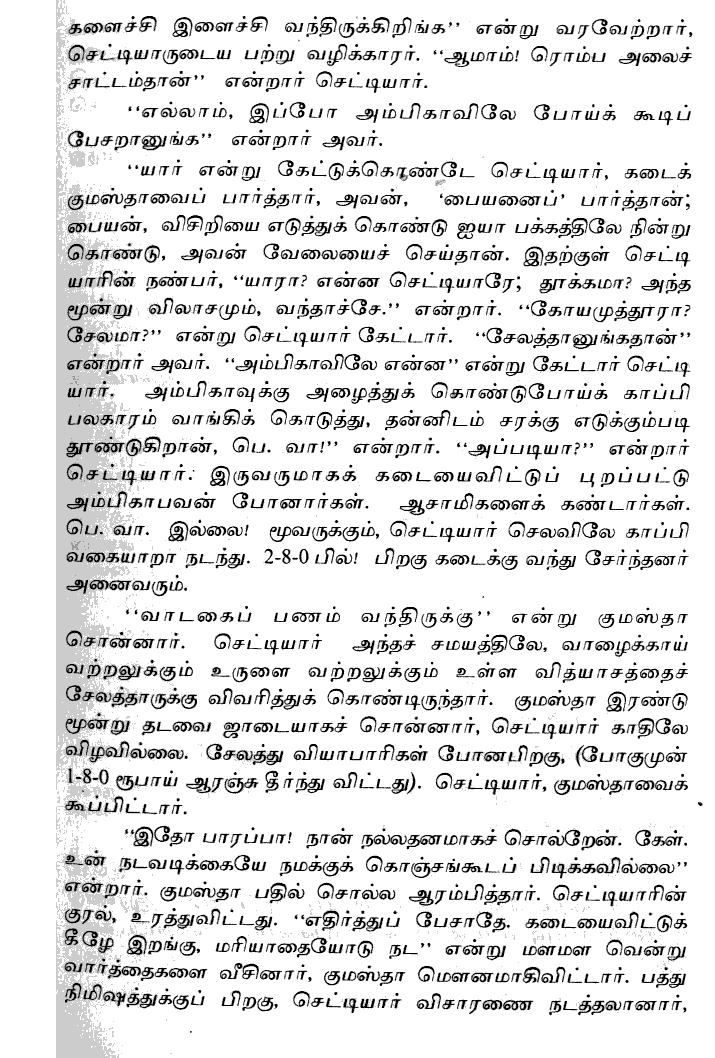 களைச்சி இளைச்சி வந்திருக்கிறிங்க’’ என்று வரவேற்றார்,
செட்டியாருடைய பற்று வழிக்காரர். ‘‘ஆமாம்! ரொம்ப அலைச்
சாட்டம்தான்’’ என்றார் செட்டியார்.
‘‘எல்லாம், இப்போ அம்பிகாவிலே போய்க் கூடிப்
பேசறானுங்க’’ என்றார் அவர்.
‘‘யார் என்று கேட்டுக்கொண்டே செட்டியார், கடைக்
குமஸ்தாவைப் பார்த்தார், அவன், ‘பையனைப்’ பார்த்தான்;
பையன், விசிறியை எடுத்துக் கொண்டு ஐயா பக்கத்திலே நின்று
கொண்டு, அவன் வேலையைச் செய்தான். இதற்குள் செட்டி
யாரின் நண்பர், ‘‘யாரா? என்ன செட்டியாரே; தூக்கமா? அந்த
மூன்று விலாசமும், வந்தாச்சே.’’ என்றார். ‘‘கோயமுத்தூரா?
சேலமா?’’ என்று செட்டியார் கேட்டார். ‘‘சேலத்தானுங்கதான்’’
என்றார் அவர். ‘‘அம்பிகாவிலே என்ன’’ என்று கேட்டார் செட்டி
யார். அம்பிகாவுக்கு அழைத்துக் கொண்டுபோய்க் காப்பி
பலகாரம் வாங்கிக் கொடுத்து, தன்னிடம் சரக்கு எடுக்கும்படி
தூண்டுகிறான், பெ. வா!’’ என்றார். ‘‘அப்படியா?’’ என்றார்
செட்டியார். இருவருமாகக் கடையைவிட்டுப் புறப்பட்டு
அம்பிகாபவன் போனார்கள். ஆசாமிகளைக் கண்டார்கள்.
பெ. வா. இல்லை! மூவருக்கும், செட்டியார் செலவிலே காப்பி
வகையாறா நடந்து. 2-8-0 பில்! பிறகு கடைக்கு வந்து சேர்ந்தனர்
அனைவரும்.
‘‘வாடகைப் பணம் வந்திருக்கு’’ என்று குமஸ்தா
சொன்னார். செட்டியார் அந்தச் சமயத்திலே, வாழைக்காய்
வற்றலுக்கும் உருளை வற்றலுக்கும் உள்ள வித்யாசத்தைச்
சேலத்தாருக்கு விவரித்துக் கொண்டிருந்தார். குமஸ்தா இரண்டு
மூன்று தடவை ஜாடையாகச் சொன்னார், செட்டியார் காதிலே
விழவில்லை. சேலத்து வியாபாரிகள் போனபிறகு, (போகுமுன்
1-8-0 ரூபாய் ஆரஞ்சு தீர்ந்து விட்டது). செட்டியார், குமஸ்தாவைக்
கூப்பிட்டார்.
‘‘இதோ பாரப்பா! நான் நல்லதனமாகச் சொல்றேன். கேள்.
உன் நடவடிக்கையே நமக்குக் கொஞ்சங்கூடப் பிடிக்கவில்லை’’
என்றார். குமஸ்தா பதில் சொல்ல ஆரம்பித்தார். செட்டியாரின்
குரல், உரத்துவிட்டது. ‘‘எதிர்த்துப் பேசாதே. கடையைவிட்டுக்
கீழே இறங்கு, மரியாதையோடு நட’’ என்று மளமள வென்று
வார்த்தைகளை வீசினார், குமஸ்தா மௌனமாகிவிட்டார். பத்து
நிமிஷத்துக்குப் பிறகு, செட்டியார் விசாரணை நடத்தலானார்,